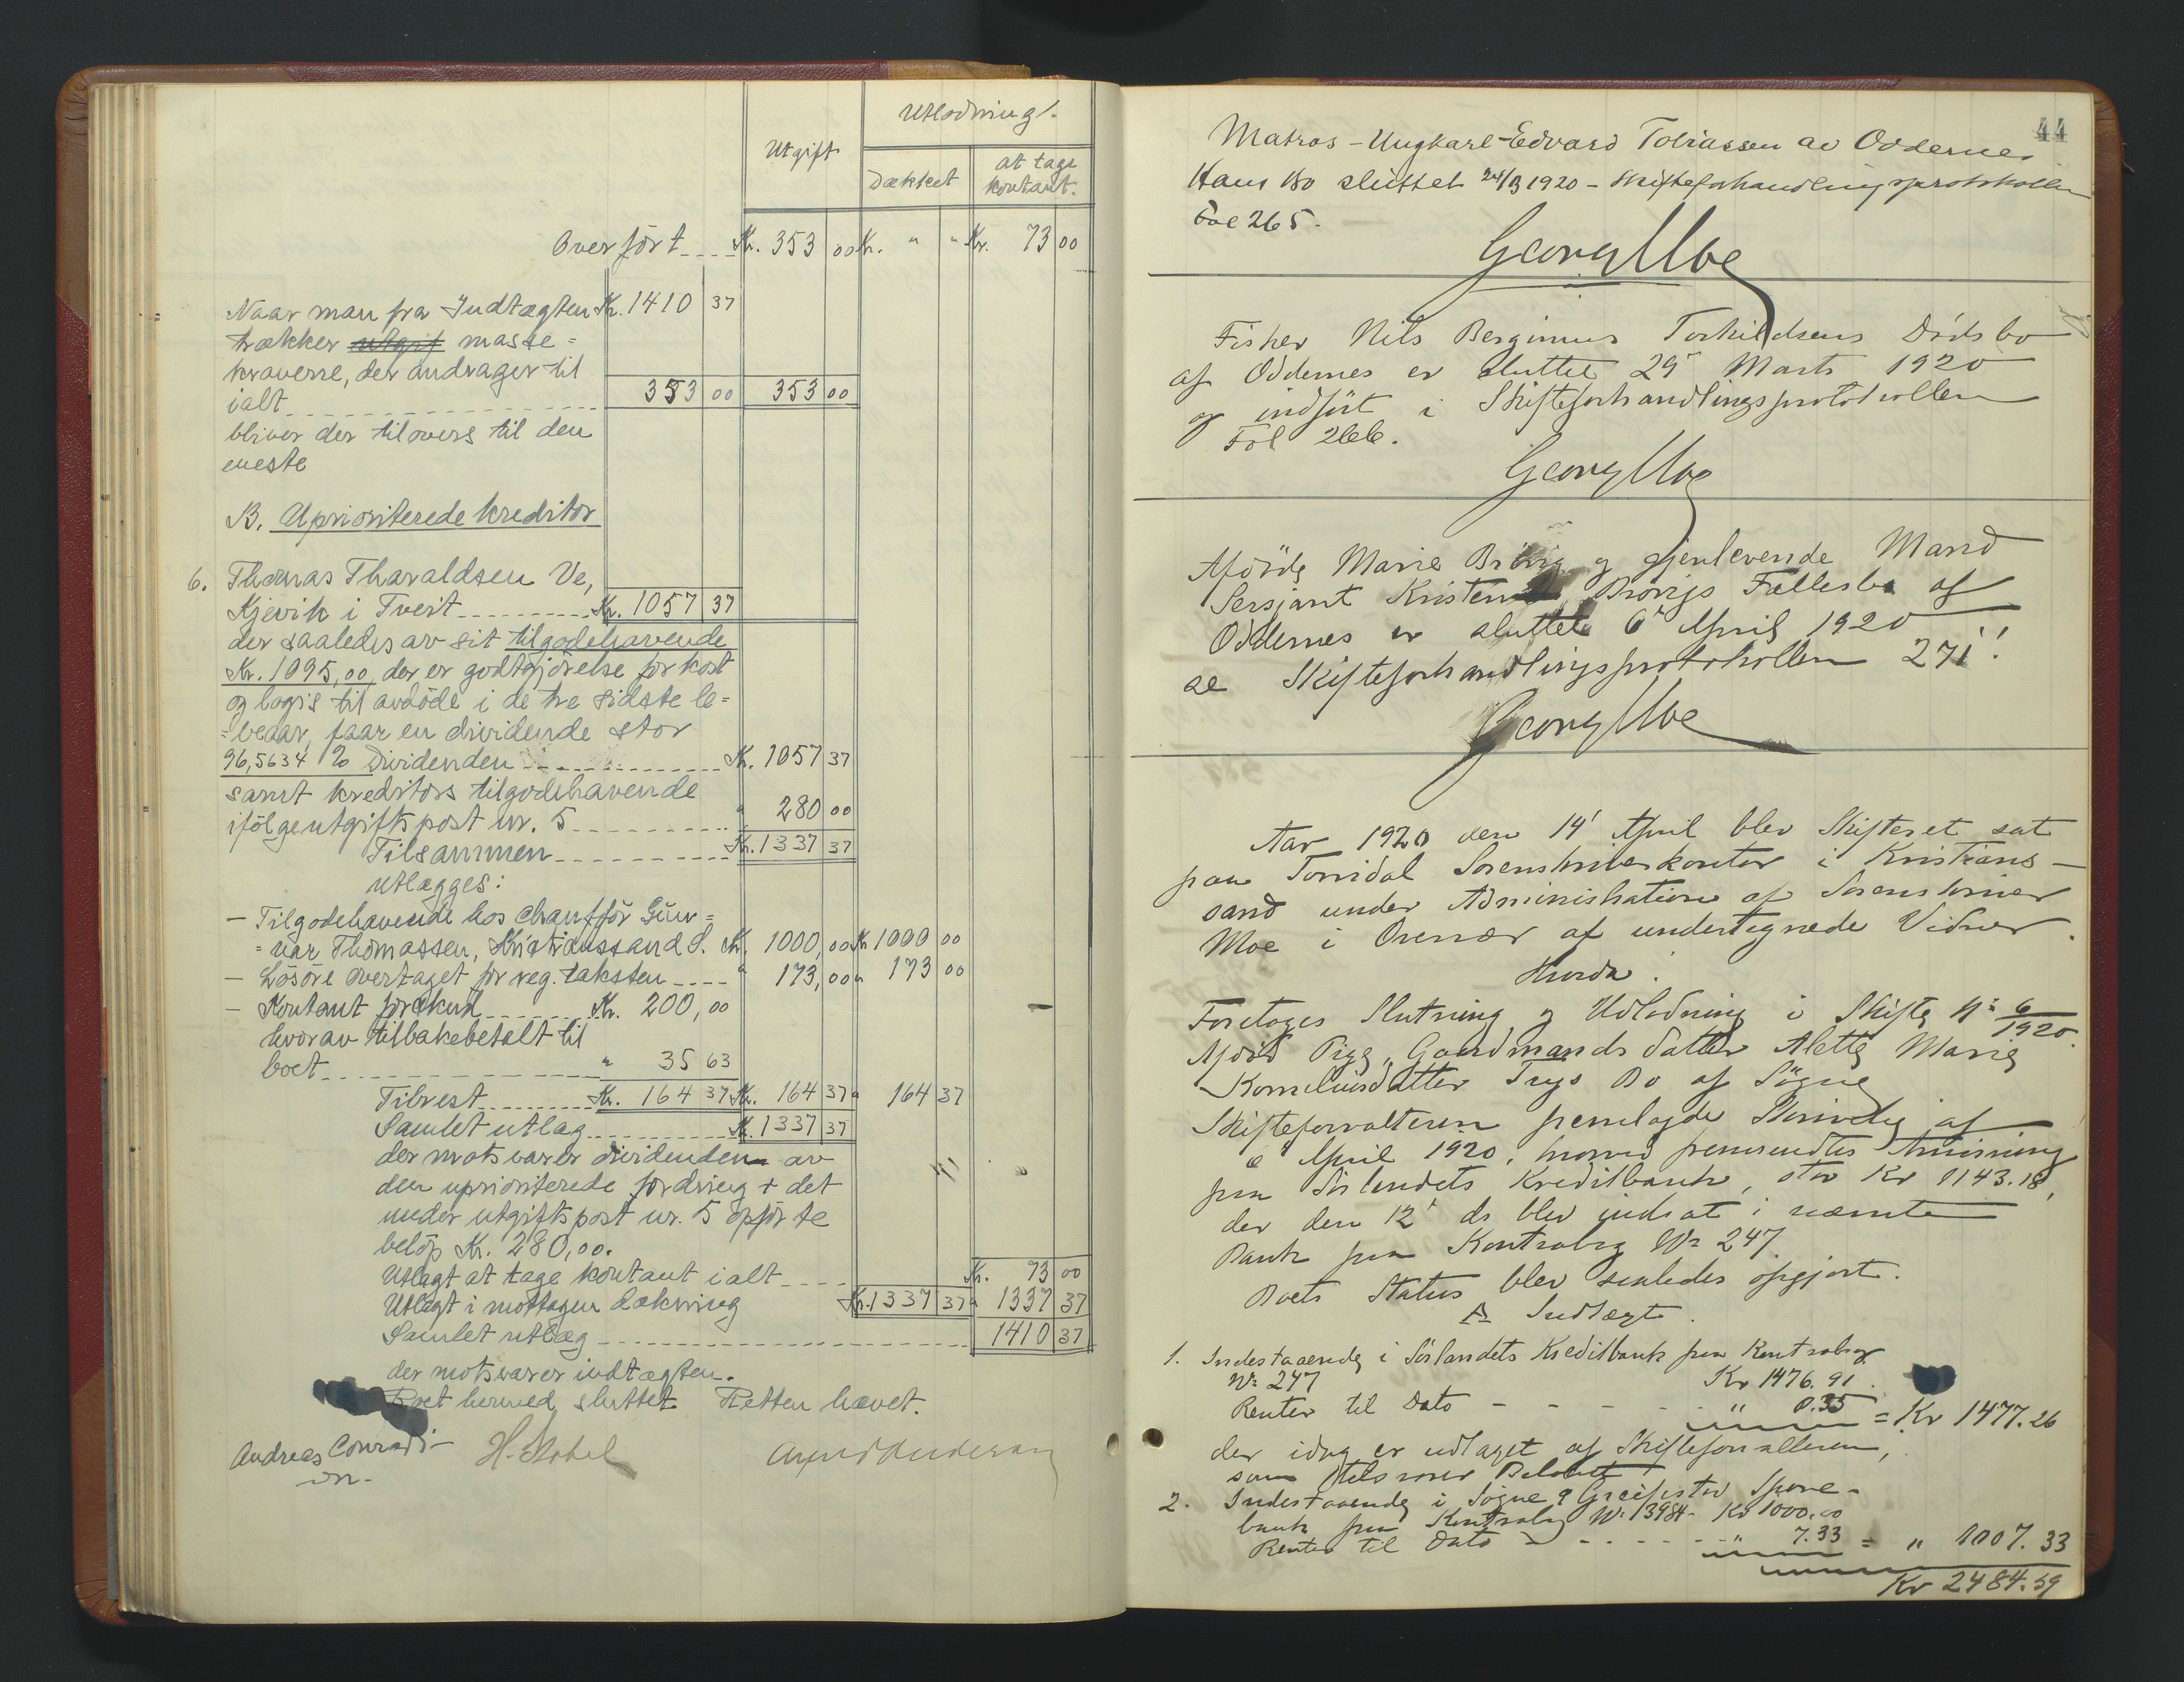 Utlodning.
Utgift
Dækket
at tage
kontant.
Overført Kr. 353 00 Kr. " " Kr. 73 00
Naar man fra Indtægten Kr. 1410 37
trækker utgif masse=
kravene, der andrager til
ialt 353 00 353 00
bliver der tilovers til den
eneste
B. Uprioriterede kreditor
6. Thomas Tharaldsen Ve,
Kjevik i Tveit Kr. 1057 37
der saaledes av sit tilgodehavende
Kr. 1095,00 der er godtgjørelse for kost
og logis til avdøde i de tre sidste le=
=veaar, faar en dividende stor
96,5634 % Dividenden Kr. 1057 37
samt kreditors tilgodehavende
ifølge utgiftspost nr. 5 " 280 00
Tilsammen Kr. 1337 37
utlægges:
— Tilgodehavende hos chauffør Gun=
=nar Thomassen, Kristianssand S. Kr. 1000,00 Kr 1000 00
— Løsøre overtaget for reg. taksten " 173,00 " 173 00
— Kontant forskud Kr. 200,00
hvorav tilbakebetalt til
boet " 35 63
Tilrest Kr. 164 37 Kr. 164 37 " 164 37
Samlet utlæg Kr. 1337 37
der motsvarer dividenden av
den uprioriterede fordring + det
under utgiftspost nr. 5 opførte
beløp Kr. 280,00.
Utlagt at tage kontant ialt Kr. 73 00
Utlagt i mottagen dækning Kr. 1337 37 " 1337 37
Samlet utlæg 1410 37
der motsvarer indtægten.
Boet hermed sluttet. Retten hævet.
Andreas Conradi H. Nobel Arnt Andersen
44
Matros - Ungkarl - Edvard Tobiassen av Oddernes
Hans Bo sluttet 24/3 1920 - Skifteforhandlingsprotokollen
Fol 265.
Georg Moe
Fisker Nils Berginius Torkildsens Dødsbo
af Oddernes er sluttet 29' Marts 1920
og indført i Skifteforhandlingsprotokollen
Fol 266.
Georg Moe
Afdøde Marie Brøvig og gjenlevende Mand
Sersjant Kristen Brøvigs Fællesbo af
Oddernes er sluttet 6' April 1920
se Skifteforhandlingsprotokollen 271'!
Georg Moe
Aar 1920 den 14' April blev Skifteret sat
paa Torridal Sorenskriverkontor i Kristians-
sand under Administration af Sorenskriver
Moe i Overvær af undertegnede Vidner.
Hvorda:
Foretoges Slutning og Udlodning i Skifte No 6/1920.
Afdøde Pige, Gaardmandsdatter Alette Marie
Korneliusdatter Trys Bo af Søgne
Skifteforvalteren fremlagde Skrivelse af
April 1920, hvorved fremsendtes Anvisning
paa Sørlandets Kreditbank, stor Kr 1143.18,
der den 12' ds blev indsat i nævnte
Bank paa Kontrabog No 247.
Boets Status blev saaledes opgjort.
A Indtægt.
1. Indestaaende i Sørlandets Kreditbank paa Kontrabog
No 247 Kr 1476.91
Renter til Dato - - - - " 0.35 = Kr 1477.26
der idag er udtaget af Skifteforvalteren,
som tilsvarer Beløbet
2. Indestaaende i Søgne & Greipstad Spare-
bank paa Kontrabog No 1398 - Kr 1000.00
Renter til Dato - - - - " 7.33 = " 1007.33
Kr 2484.59